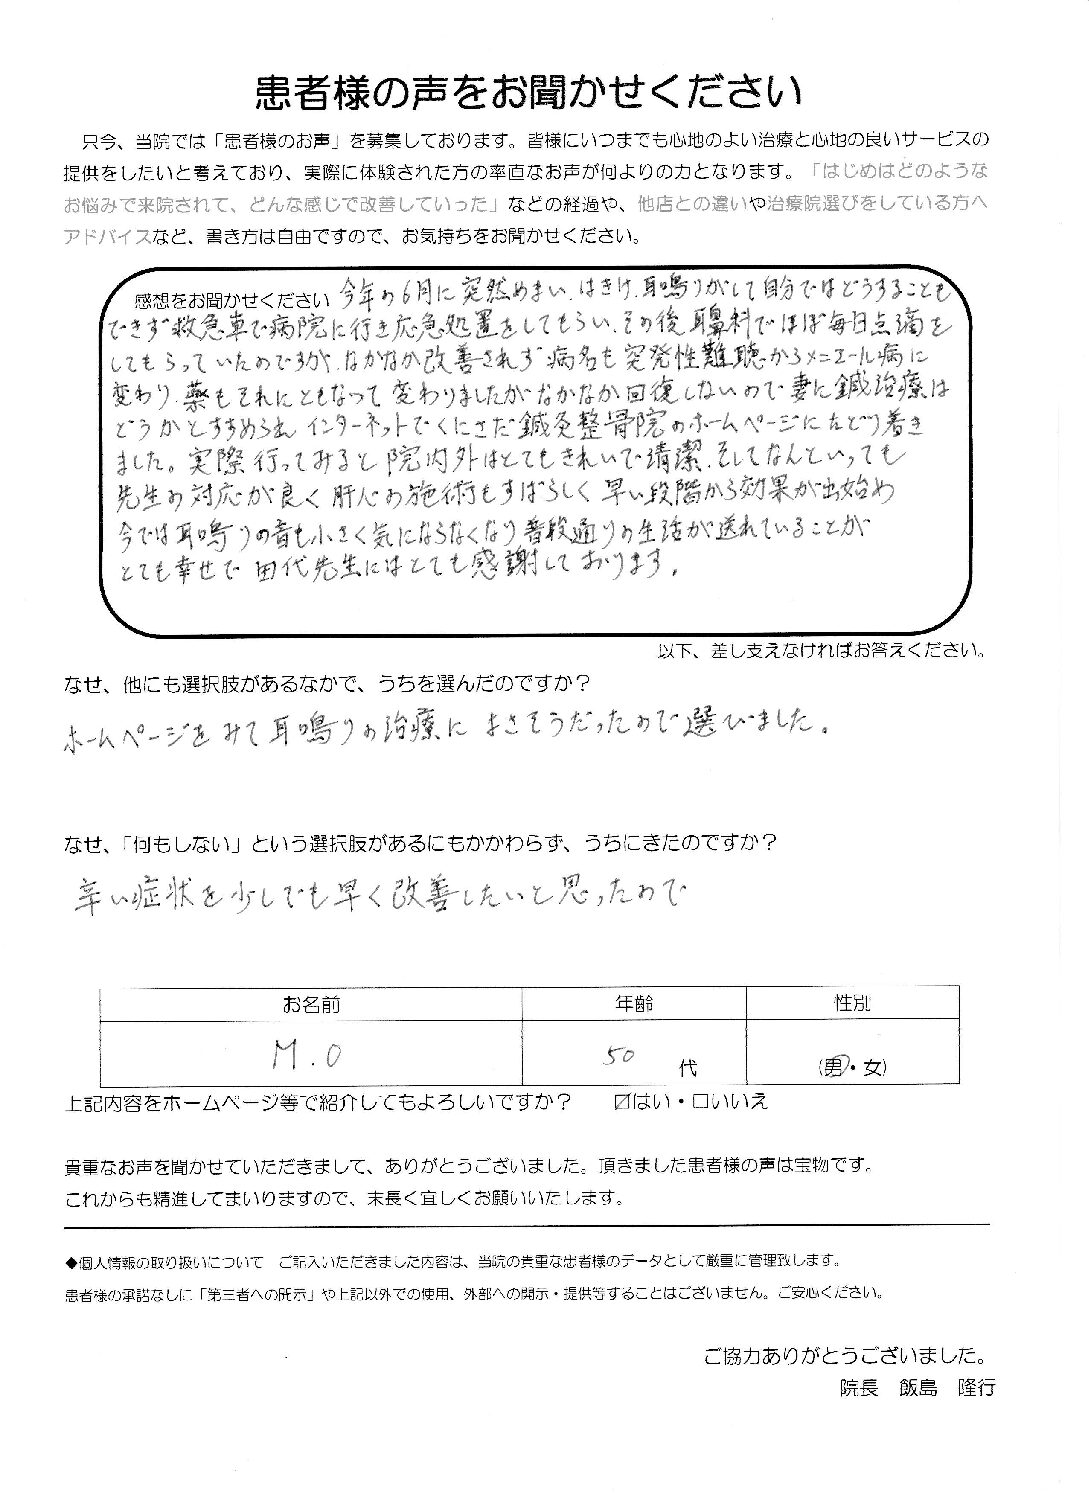 患者様の声をお聞かせください
只今、当院では「患者様のお声」を募集しております。皆様にいつまでも心地のよい治療と心地の良いサービスの
提供をしたいと考えており、実際に体験された方の率直なお声が何よりの力となります。「はじめはどのような
お悩みで来院されて、どんな感じで改善していった」などの経過や、他店との違いや治療院選びをしている方へ
アドバイスなど、書き方は自由ですので、お気持ちをお聞かせください。
感想をお聞かせください 今年の6月に突然めまい、はきけ、耳鳴りがして自分ではどうすることも
できず救急車で病院に行き応急処置をしてもらい、その後耳鼻科でほぼ毎日点滴を
してもらっていたのですが、なかなか改善されず病名も突発性難聴からメニエール病に
変わり、薬もそれにともなって変わりましたがなかなか回復しないので妻に鍼治療は
どうかとすすめられインターネットでくにさだ鍼灸整骨院のホームページにたどり着き
ました。実際行ってみると院内外はとてもきれいで清潔、そしてなんといっても
先生の対応が良く肝心の施術もすばらしく早い段階から効果が出始め
今では耳鳴りの音も小さく気にならなくなり普段通りの生活が送れていることが
とても幸せで田代先生にはとても感謝しております。
以下、差し支えなければお答えください。
なぜ、他にも選択肢があるなかで、うちを選んだのですか？
ホームページをみて耳鳴りの治療によさそうだったので選びました。
なぜ、「何もしない」という選択肢があるにもかかわらず、うちにきたのですか？
辛い症状を少しでも早く改善したいと思ったので
お名前 年齢 性別
M.O 50代 (男・女)
上記内容をホームページ等で紹介してもよろしいですか？ ☑はい・□いいえ
貴重なお声を聞かせていただきまして、ありがとうございました。頂きました患者様の声は宝物です。
これからも精進してまいりますので、末長く宜しくお願いいたします。
◆個人情報の取り扱いについて ご記入いただきました内容は、当院の貴重な患者様のデータとして厳重に管理致します。
患者様の承諾なしに「第三者への開示」や上記以外での使用、外部への開示・提供等することはございません。ご安心ください。
ご協力ありがとうございました。
院長 飯島 隆行